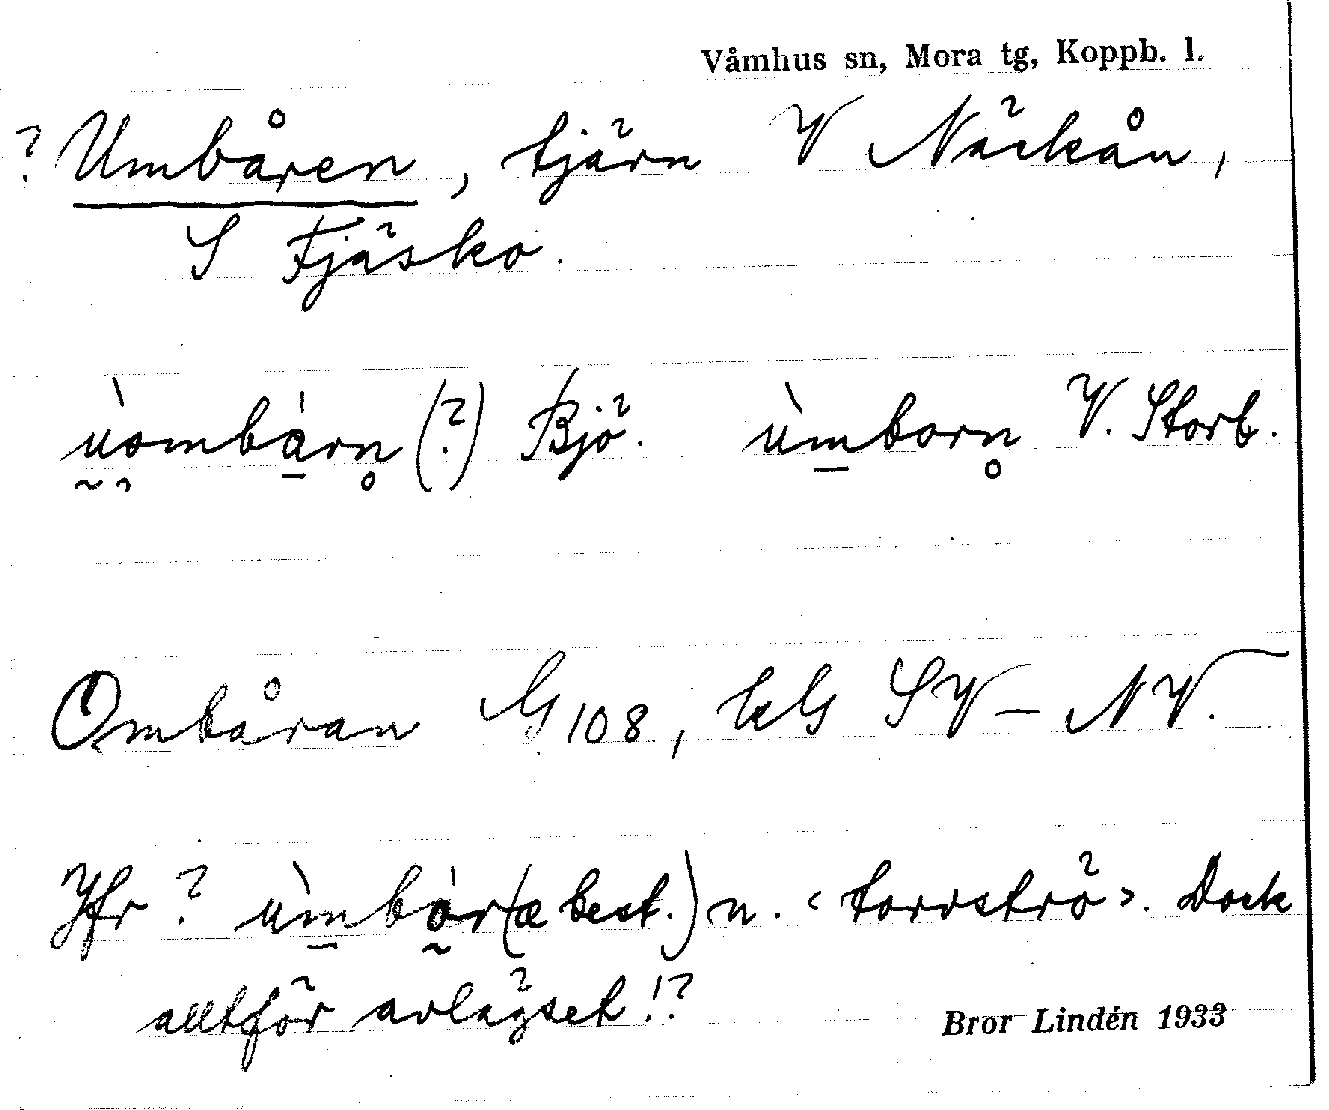 Våmhus sn, Mora tg, Koppb. l.
? Umbåren, tjärn V Näckån,
S Fjäsko.
ùo̯mbàrn̥ (?) Bjö. ùm̲born̥ V. Storb.
Ombåran G 108, bl G SV – NV.
Jfr ? ùm̲bo̰r(æ best.) n. ‹torrströ›. Dock
alltför avlägset!?
Bror Lindén 1933